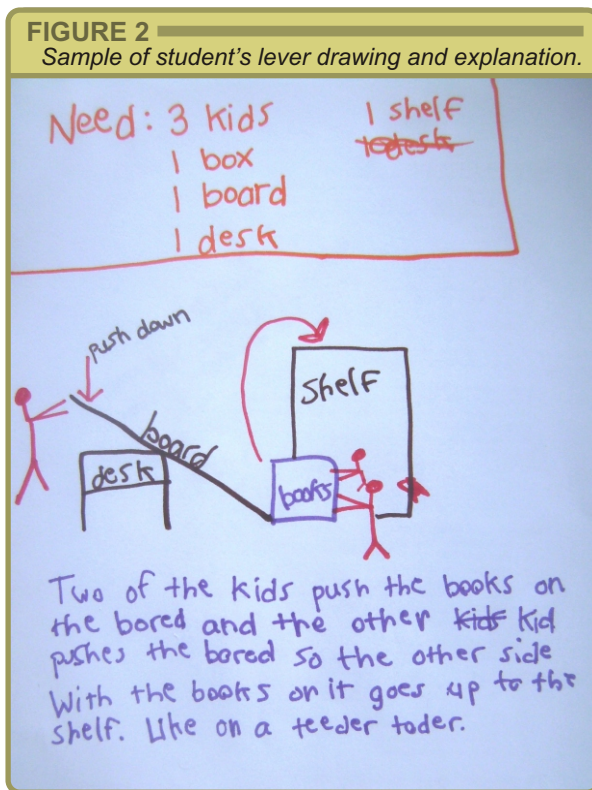 FIGURE 2
Sample of student's lever drawing and explanation.
Need: 3 kids
1 box
1 board
1 desk
1 shelf
push down
board
desk
shelf
books
Two of the kids push the books on
the bored and the other kids kid
pushes the bored so the other side
with the books on it goes up to the
shelf. Like on a teeder toder.